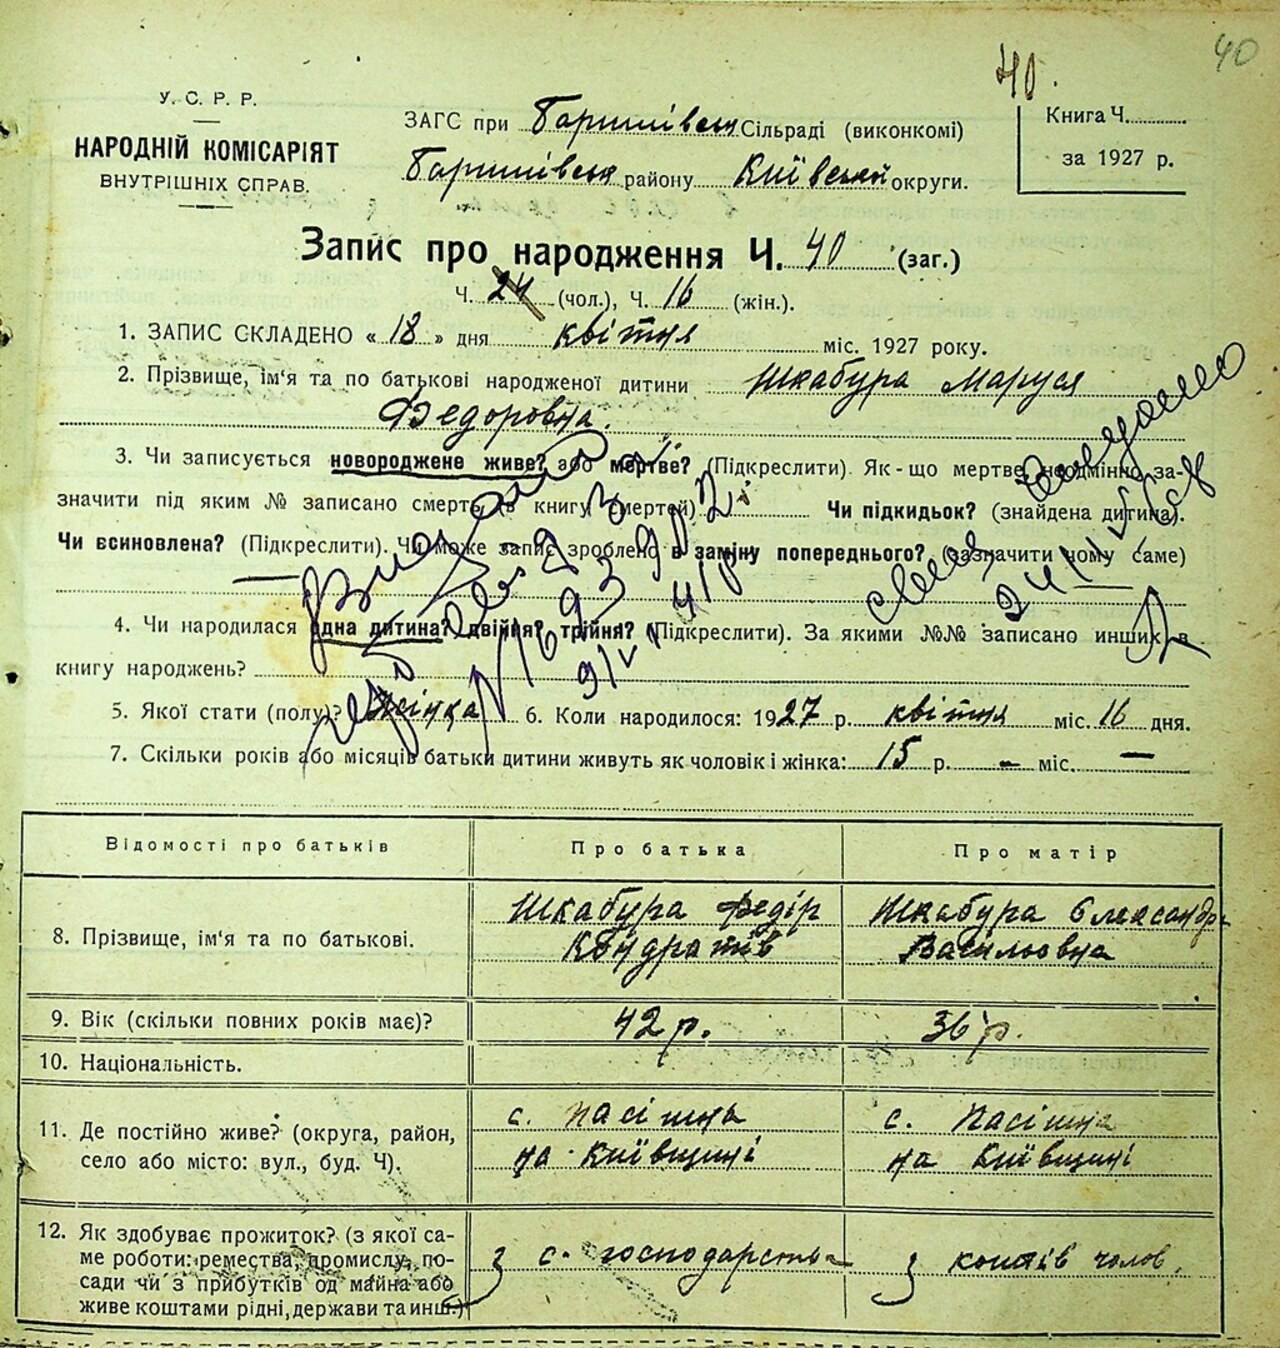 40
40.
У. С. Р. Р.
НАРОДНІЙ КОМІСАРІЯТ
ВНУТРІШНІХ СПРАВ.
ЗАГС при Баришівськ Сільраді (виконкомі)
Баришівськ району Київської округи.
Книга Ч.
за 1927 р.
Запис про народження Ч. 40 (заг.)
Ч. 24 (чол.), Ч. 16 (жін.).
1. ЗАПИС СКЛАДЕНО « 18 » дня квітня міс. 1927 року.
2. Прізвище, ім'я та по батькові народженої дитини Шкабура Маруся
Федоровна.
3. Чи записується новороджене живе? або мертве? (Підкреслити). Як-що мертве, неодмінно за-
значити під яким № записано смерть (в книгу смертей) Чи підкидьок? (знайдена дитина).
Чи всиновлена? (Підкреслити). Чи може запис зроблено в заміну попереднього? (зазначити чому саме)
24/IV 58
4. Чи народилася одна дитина? двійня? трійня? (Підкреслити). За якими №№ записано инших в
книгу народжень?
5. Якої стати (полу)? Жінка 6. Коли народилося: 1927 р. квітня міс. 16 дня.
7. Скільки років або місяців батьки дитини живуть як чоловік і жінка: 15 р. – міс. —
Відомості про батьків Про батька Про матір
8. Прізвище, ім'я та по батькові. Шкабура Федір Шкабура Олександр
Кондратів Васильовна
9. Вік (скільки повних років має)? 42 р. 36 р.
10. Національність.
11. Де постійно живе? (округа, район, с. Пасішна с. Пасішна
село або місто: вул., буд. Ч). на Київщині на Київщині
12. Як здобуває прожиток? (з якої са-
ме роботи: ремества, промислу, по- з с. господарства з коштів чолов.
сади чи з прибутків од майна або
живе коштами рідні, держави та инш.)